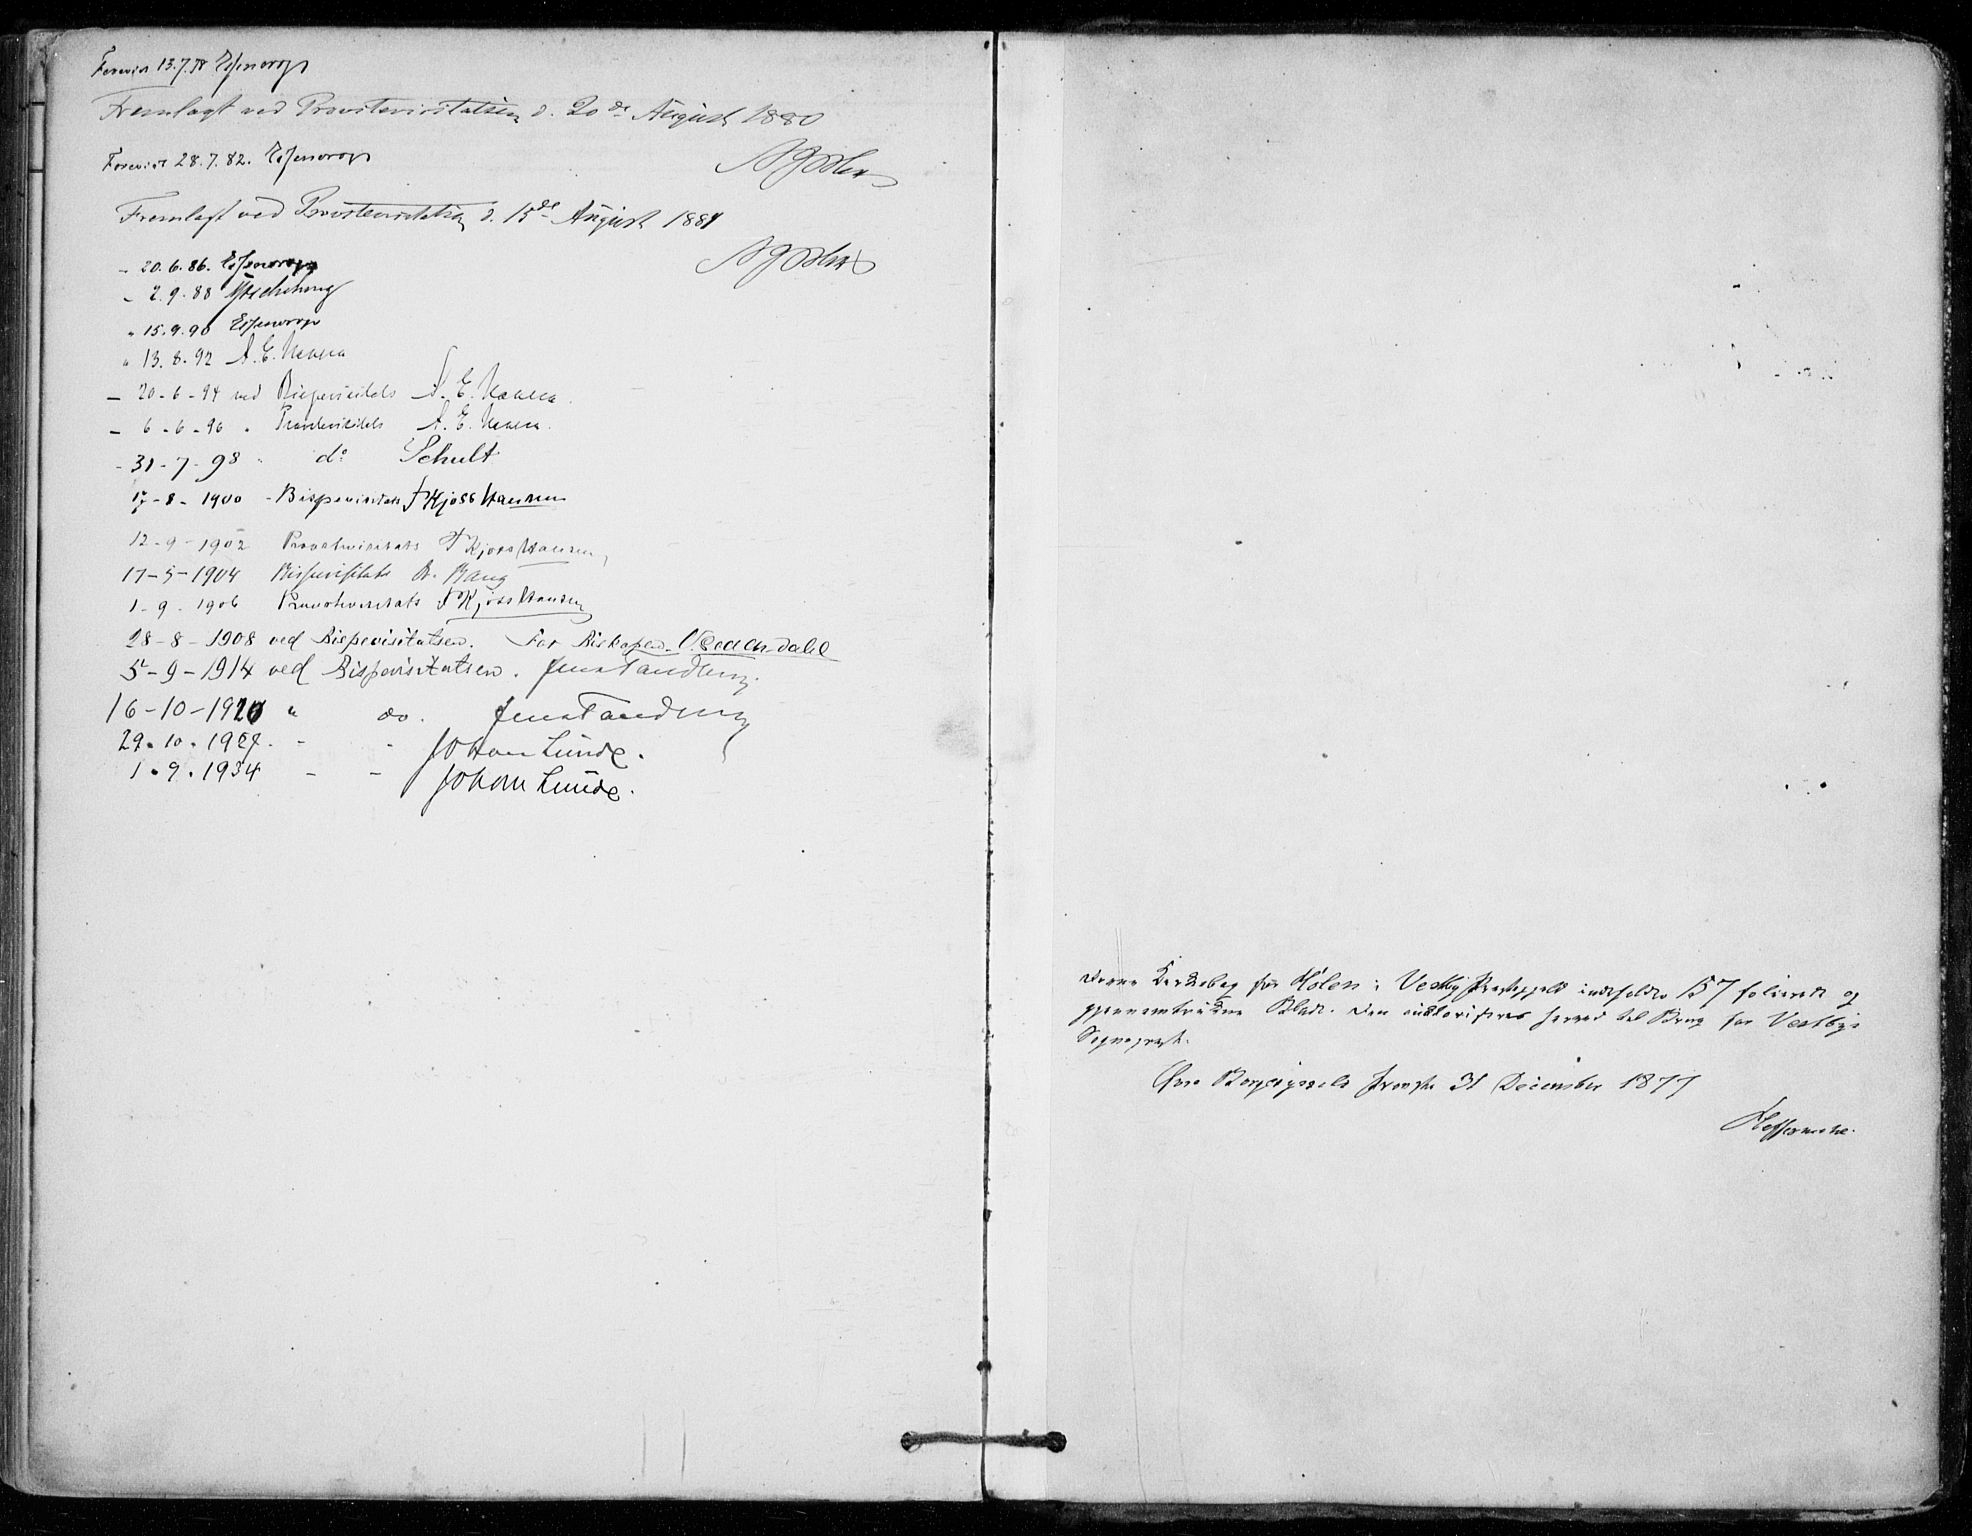 Forevist 13.7.78 Essendrop
Fremlagt ved Provstevisitatsen d. 20de August 1880
Forevist 28.7.82. Essendrop
Fremlagt ved Provstevisitatsen d. 15de August 1884
- 20.6.86. Essendrop
- 2.9.88
" 15.9.90 Essendrop
" 13.8.92 A. E.
- 20-6-94 ved Bispevisitats A. E.
- 6-6-96 " Provstevisitats A. E.
- 31-7-98 " do Schult
17-8-1900 - Bispevisitats F Kjoss Hanssen
12-9-1902 Provstevisitats F Kjoss Hanssen
17-5-1904 Bispevisitats A. Bang
1-9-1906 Provstevisitats F Kjoss Hanssen
28-8-1908 ved Bispevisitatsen. For Biskopen
5-9-1914 ved Bispevisitatsen. Jens Tandberg
16-10-1920 " do. Jens Tandberg
29.10.1927. - - Johan Lunde.
1.9.1934 - - Johan Lunde.
Denne Kirkebog for Hølen i Vestby Præstegjeld indeholder 157 folierede og
gjennemtrukne Blade. Den autoriseres herved til Brug for Vestbys
Sognepræst.
Øvre Borgesyssels Provsti 31 December 1877